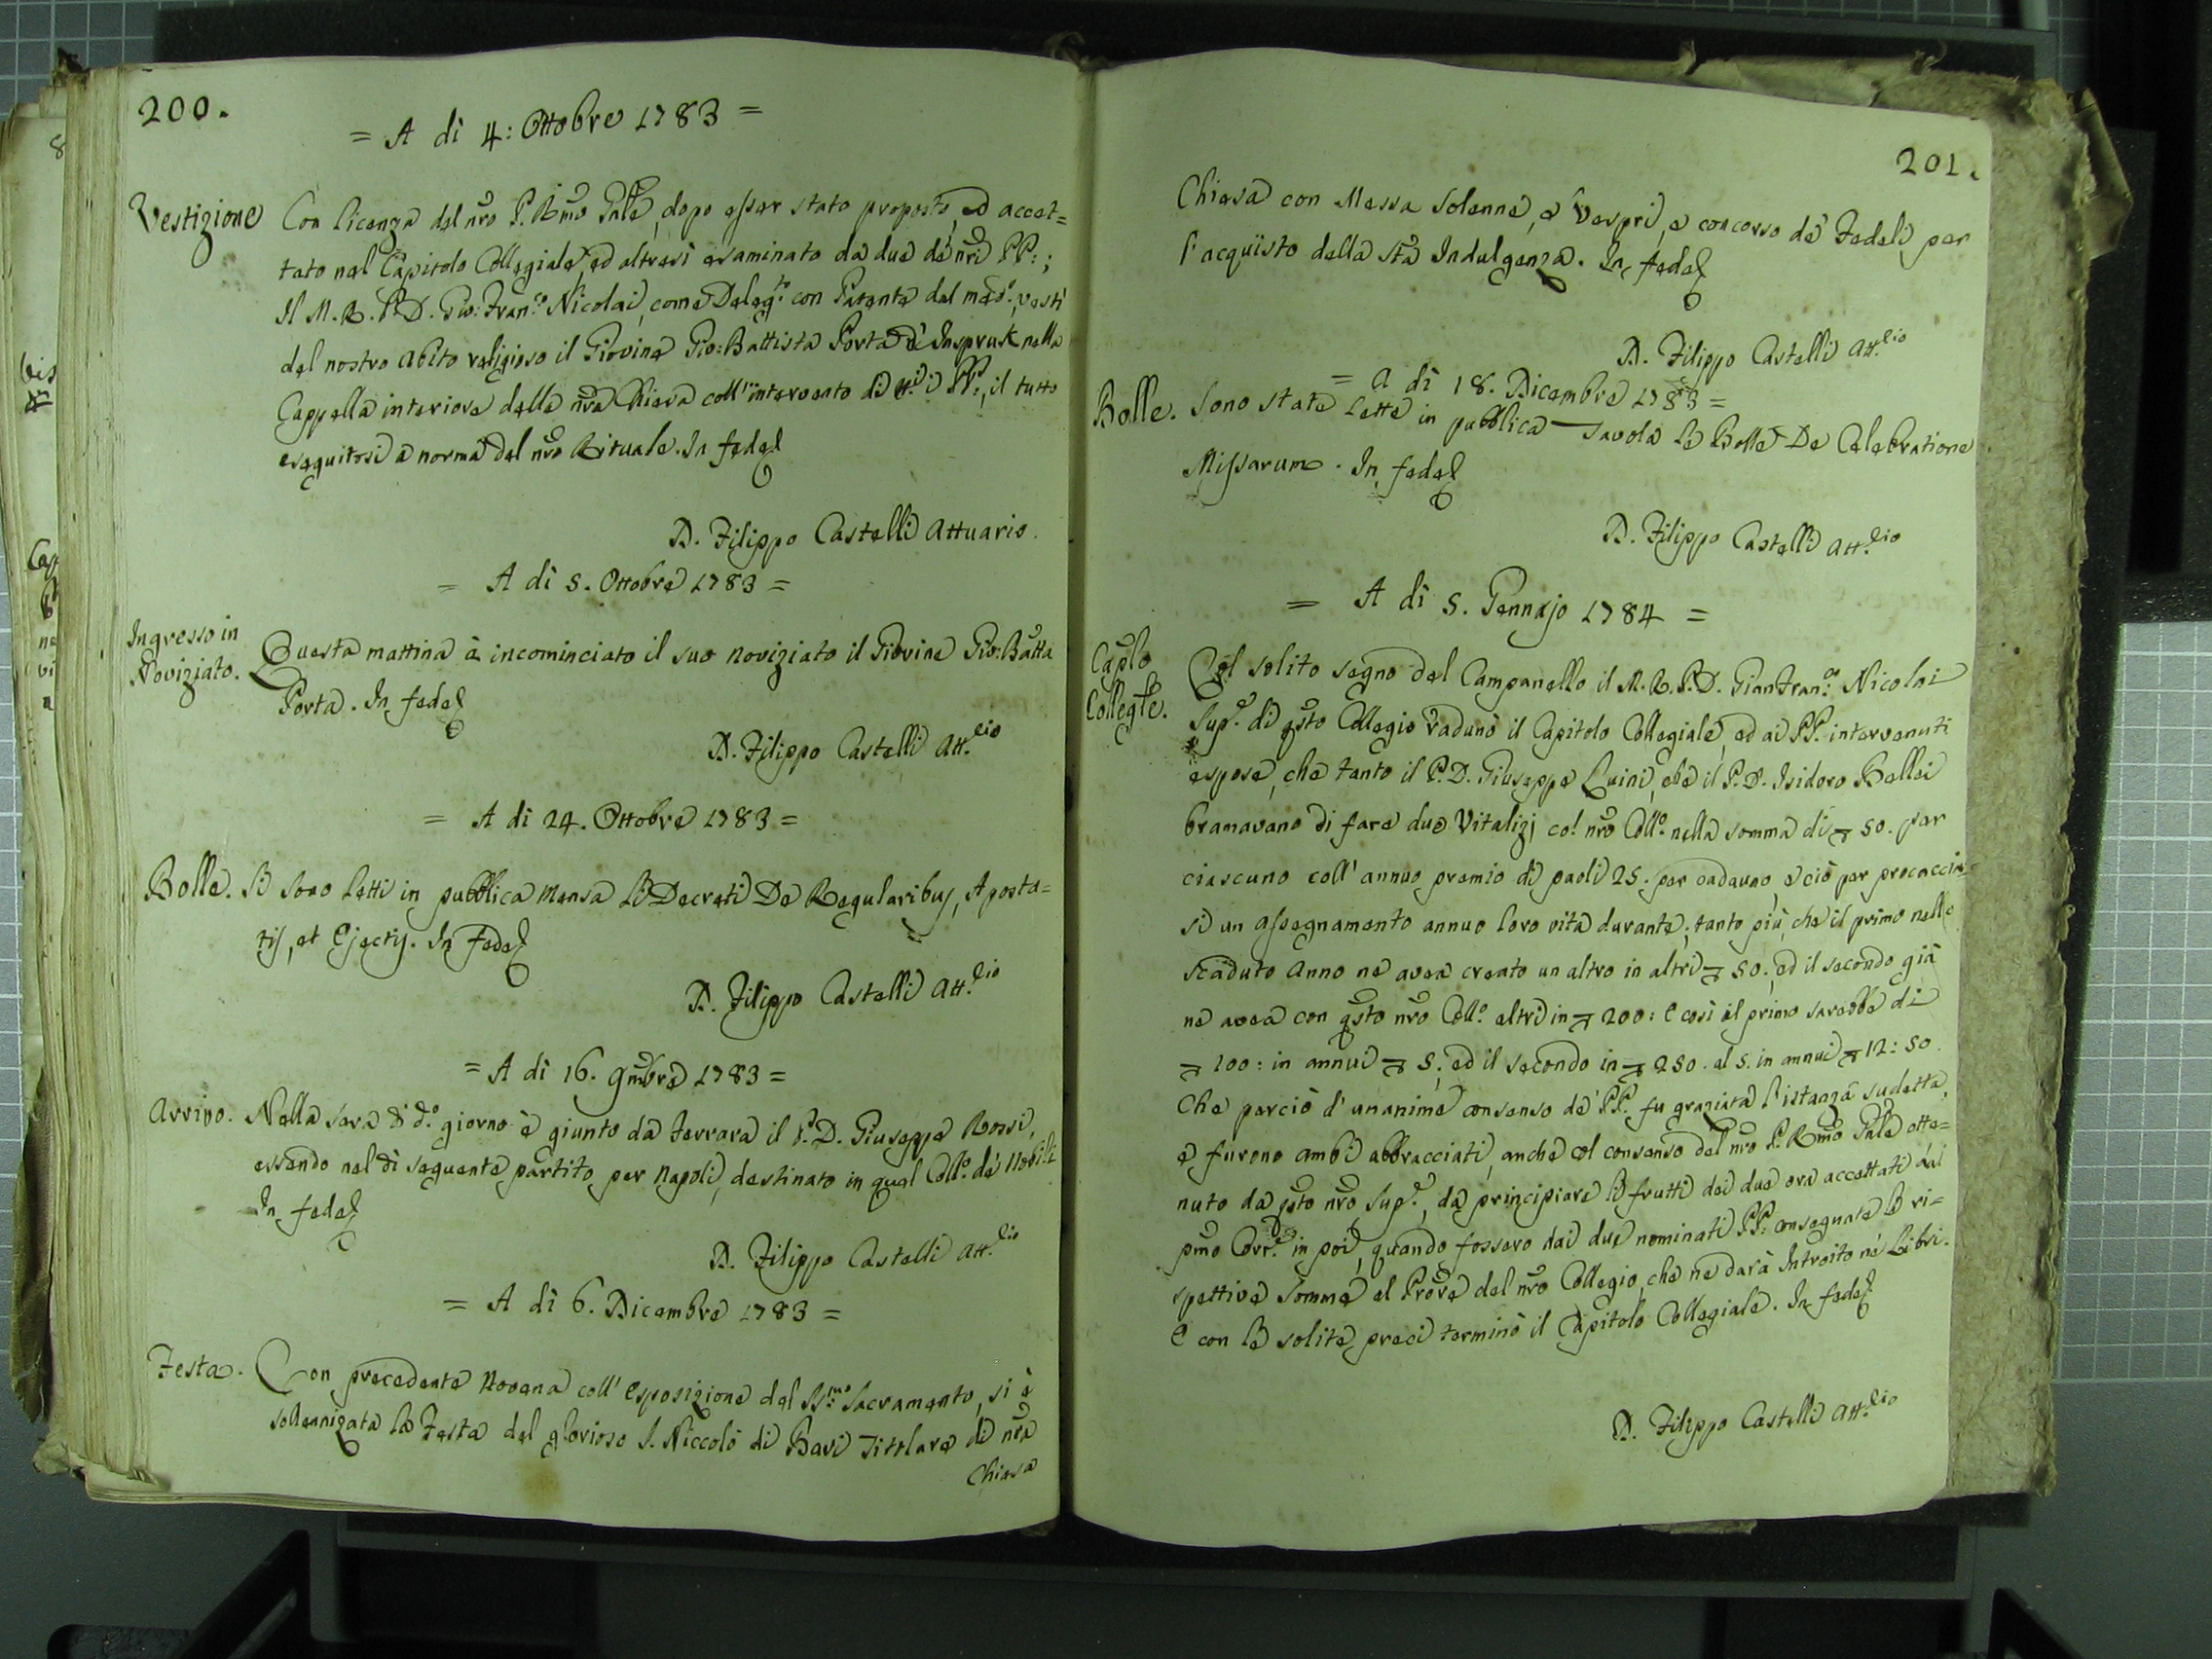 200.
= A dì 4: Ottobre 1783 =
Vestizione Con licenza del nrõ P. Rmõ Gnle, dopo esser stato proposto, ed accet=
tato nel Capitolo Collegiale, ed altresì esaminato da due de' nrĩ PP:;
Il M. R. P. D. Gio: Franco Nicolai, come Delegto con Patente del medo, vestì
del nostro Abito religioso il Giovine Gio: Battista Porta d'Inspruk nella
Cappella interiore della nrã Chiesa coll'intervento di PP:, il tutto
eseguitosi a norma del nrõ Rituale. In fede
D. Filippo Castelli Attuario.
= A dì 5. Ottobre 1783 =
Ingresso in
Noviziato.
Questa mattina à incominciato il suo noviziato il Giovine Gio: Battã
Porta. In fede
D. Filippo Castelli Att.lio
= A dì 24. Ottobre 1783 =
Bolle. Si sono letti in pubblica Mensa li Decreti De Regularibus, Aposta=
tis, et Ejectis. In fede
D. Filippo Castelli Att.lio
= A dì 16. 9mbre 1783 =
Arrivo. Nella sera di do. giorno è giunto da Ferrara il P. D. Giuseppe Rossi,
essendo nel dì seguente partito per Napoli, destinato in quel Collo. de' Nobili
In fede
D. Filippo Castelli Att.lio
= A dì 6. Dicembre 1783 =
Festa. Con precedente Novena coll'esposizione del SS:mo Sacramento, si è
sollennizata la Festa del glorioso S. Niccolò di Bari Titolare di nrã
Chiesa
201.
Chiesa con Messa Solenne, e Vespri, e concorso de' Fedeli per
l'acquisto della Stã Indulgenza. In fede
D. Filippo Castelli Att.lio
= A dì 18. Dicembre 1783 =
Bolle. Sono state lette in pubblica Tavola le Bolle De Celebratione
Missarum. In fede
D. Filippo Castelli Att.lio
= A dì 5. Gennajo 1784 =
Caplo
Collegle.
Col solito segno del Campanello il M. R. P. D. Gian Franco: Nicolai
Supre. di qsto Collegio radunò il Capitolo Collegiale, ed ai PP. intervenuti
espose, che tanto il P. D. Giuseppe Luini, che il P. D. Isidoro Bellei
bramavano di fare due Vitalizj col nrõ Collo. nella somma di 50. per
ciascuno coll'annuo premio di paoli 25. per cadauno, e ciò per procacciar
si un assegnamento annuo loro vita durante; tanto più, che il primo nello
scaduto Anno ne avea creato un altro in altri 50: ed il secondo già
ne avea con qsto nrõ Collo. altri in 200: e così il primo sarebbe di
100: in annui 5: ed il secondo in 250. al 5. in annui 12: 50.
Che perciò d'unanime consenso de' PP. fu graziata l'istanza sudetta,
e furono ambi abbracciati, anche col consenso del nrõ P. Rmõ Gnle otte=
nuto da qsto nrõ Supre., da principiare li frutti dei due ora accettati dal
pmo Corre. in poi, quando fossero dai due nominati PP. consegnate le ri=
spettive Somme al Prore del nrõ Collegio, che ne darà Introito ne' Libri.
E con le solite preci terminò il Capitolo Collegiale. In fede
D. Filippo Castelli Att.lio